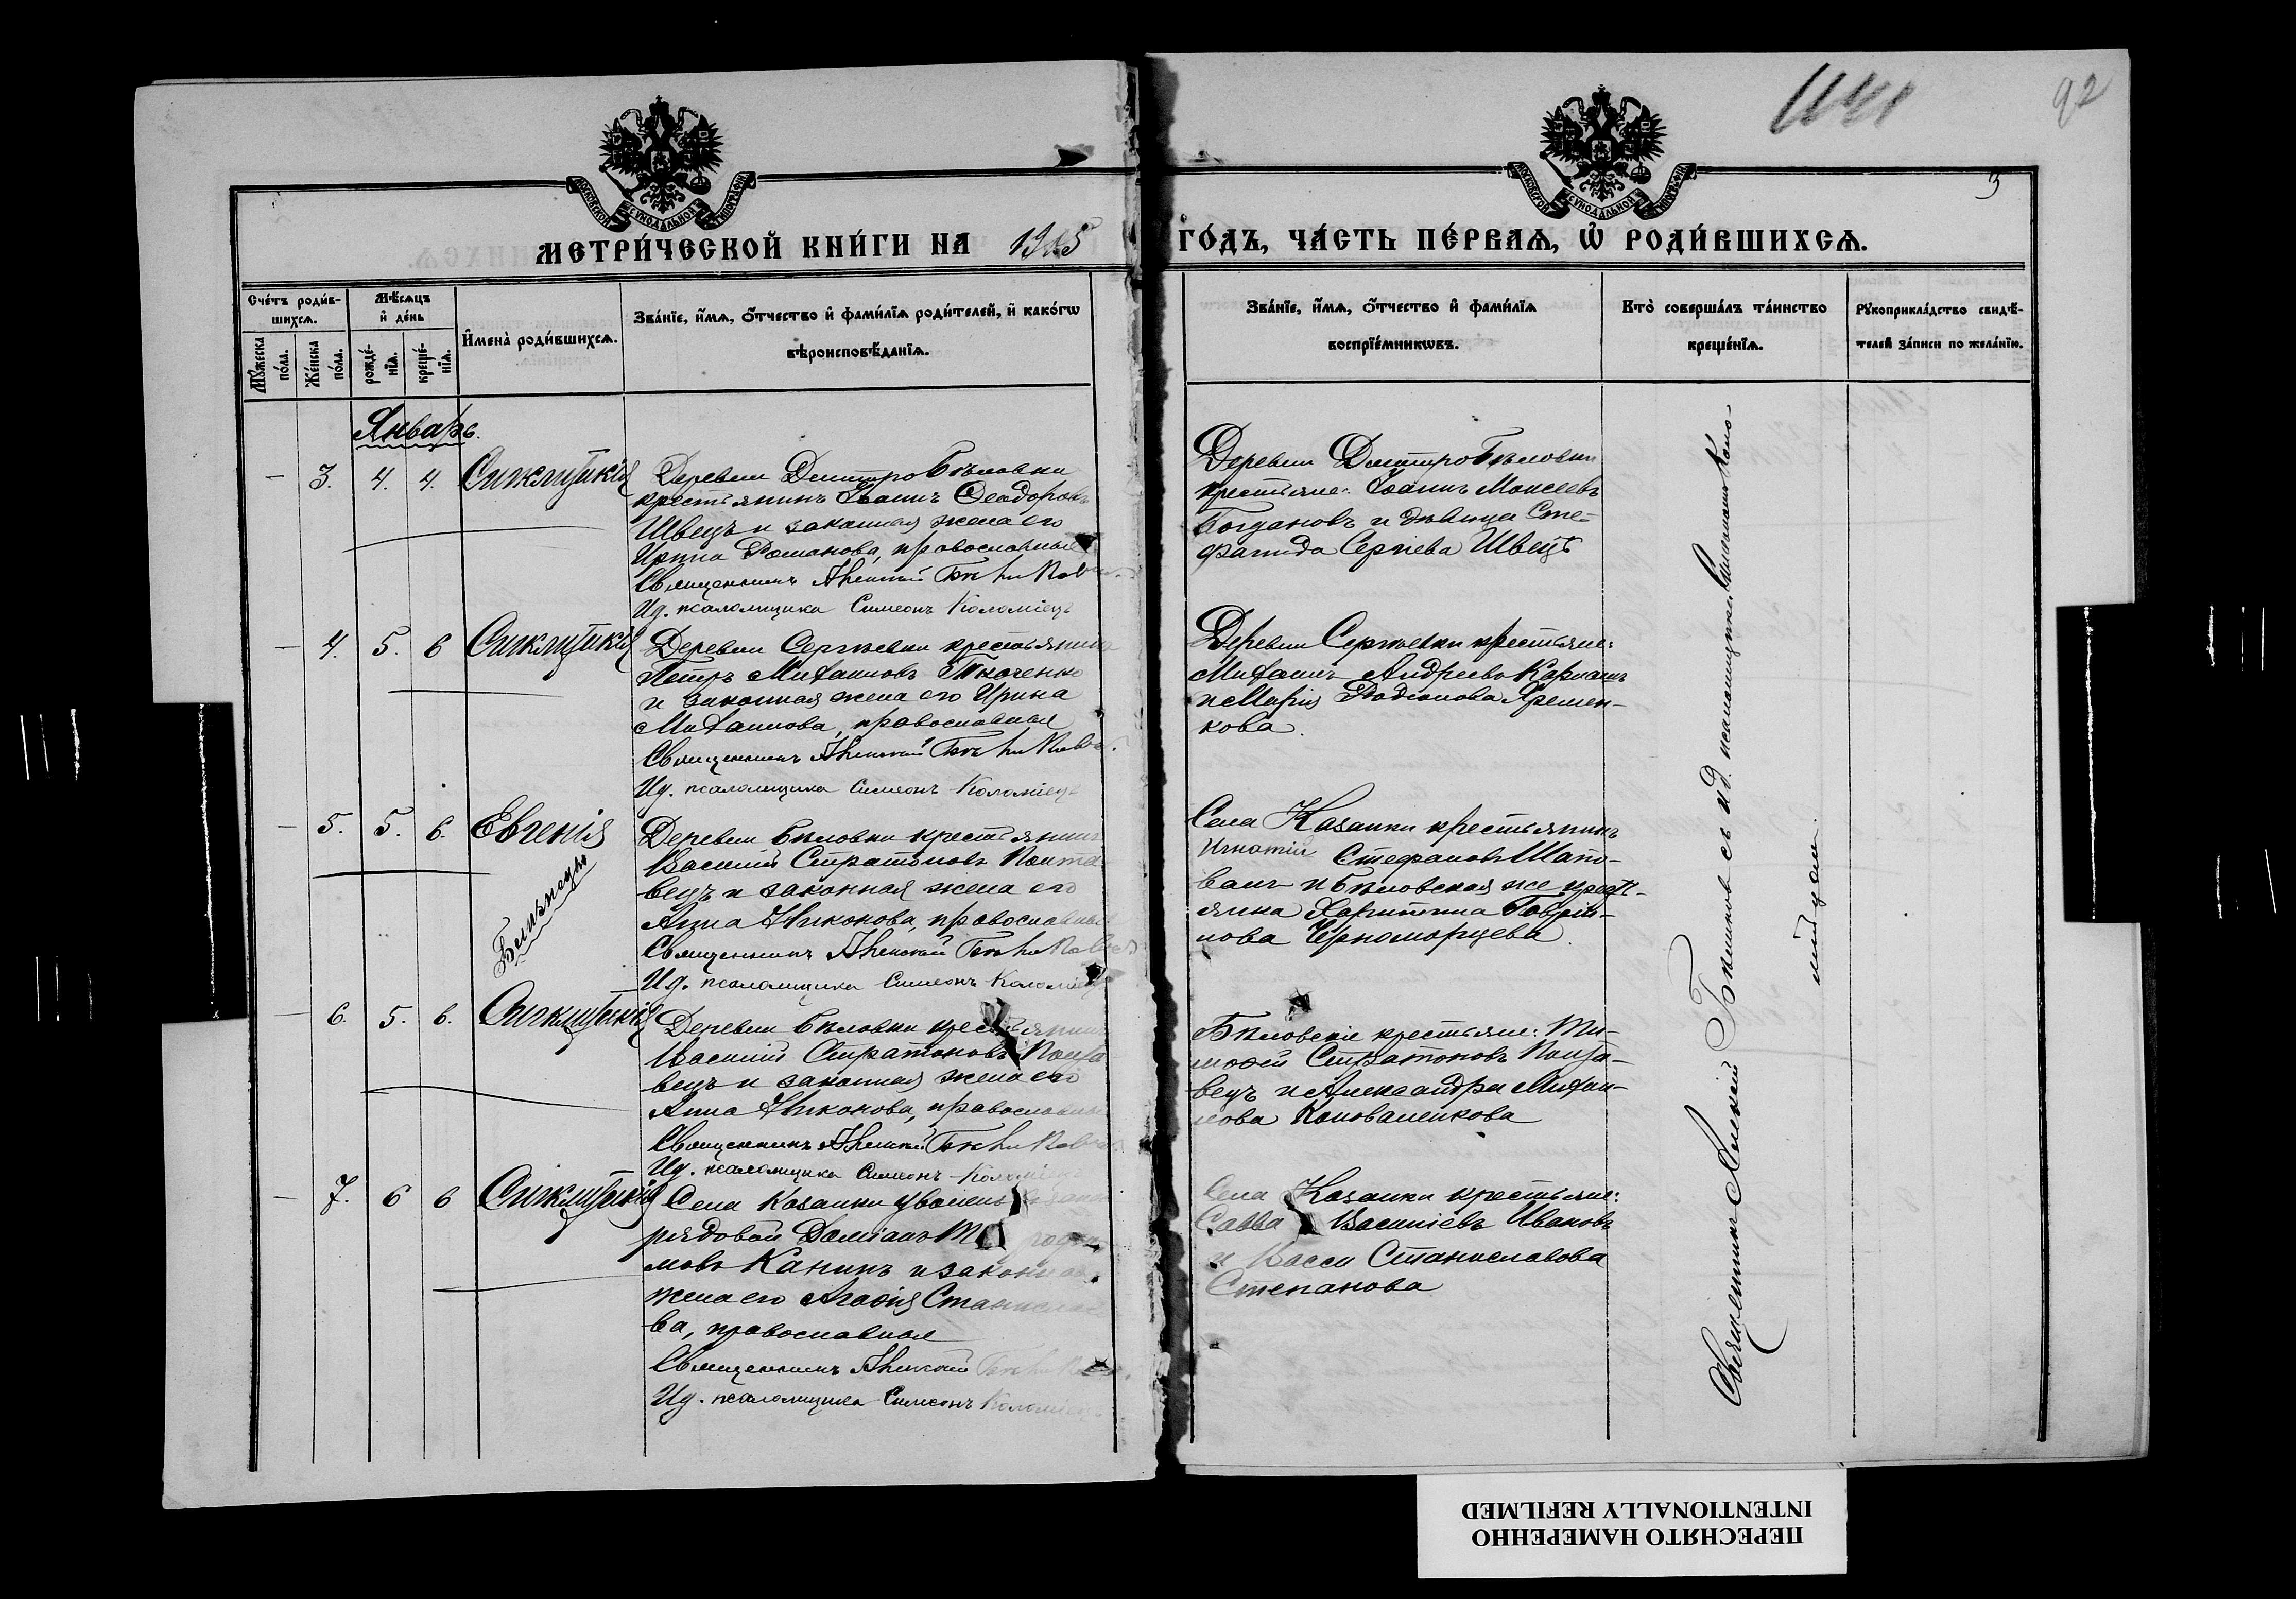 92
3
МОСКОВСКОЙ СУНОДАЛЬНОЙ ТИПОГРАФІИ
МОСКОВСКОЙ СУНОДАЛЬНОЙ ТИПОГРАФІИ
МЕТРИ́ЧЕСКОЙ КНИ́ГИ НА 1905 ГО́ДЪ, ЧА́СТЬ ПЕ́РВАѦ, Ѡ҆ РОДИ́ВШИХСѦ.
Сче́тъ роди́в-
шихсѧ.
Мꙋ́жеска по́ла.
Же́нска по́ла.
Мѣ́сѧцъ и҆ де́нь
рожде́-нїѧ.
креще́-нїѧ.
И҆мена̀ роди́вшихсѧ.
Зва́нїе, и҆́мѧ, ѻ҆́тчество и҆ фами́лїѧ роди́телей, и҆ како́гѡ
вѣроисповѣ́данїѧ.
Зва́нїе, и҆́мѧ, ѻ҆́тчество и҆ фами́лїѧ
воспрїе́мникѡвъ.
Кто̀ соверша́лъ та́инство
креще́нїѧ.
Рꙋкоприкла́дство свидѣ́-
телей за́писи по жела́нїю.
Январь.
– 3. 4. 4. Сигклитикія
Деревни Дмитро Бѣловки
крестьянинъ Іоаннъ Ѳеодоровъ
Швецъ и законная жена его
Ирина Романова, православные
Священникъ Алексій Бѣликовъ
Ид. псаломщика Симеонъ Коломіецъ
Деревни Дмитро Бѣловки
крестьяне: Іоаннъ Моисеевъ
Богдановъ и дѣвица Сте-
фанида Сергіева Швецъ
– 4. 5. 6 Сигклитикія
Деревни Сергѣевки крестьянинъ
Петръ Михаиловъ Ткаченко
и законная жена его Ирина
Михаилова, православная
Священникъ Алексій Бѣликовъ.
Ид. псаломщика Симеонъ Коломіецъ
Деревни Сергѣевки крестьяне:
Михаилъ Андреевъ
и Марія Родіонова Яремен-
кова.
– 5. 5. 6. Евгенія
Близнецы
Деревни Бѣловки крестьянинъ
Василій Стратоновъ Полта-
вецъ и законная жена его
Анна Никонова, православные
Священникъ Алексій Бѣликовъ
Ид. псаломщика Симеонъ Коломіецъ
Села Казанки крестьянинъ
Игнатій Стефановъ Шапо-
валъ и Бѣловская же крест-
янка Харитина Гавріи-
лова Черноморцева.
– 6. 5. 6. Сигклитикія
Деревни Бѣловки крестьянинъ
Василій Стратоновъ Полта-
вецъ и законная жена его
Анна Никонова, православные
Священникъ Алексій Бѣликовъ
Ид. псаломщика Симеонъ Коломіецъ
Бѣловскіе крестьяне: Ти-
моѳей Стратоновъ Полта-
вецъ и Александра Михаи-
лова Коноваленкова
– 7. 6 6 Сигклитикія
Села Казанки
рядовой Даміанъ
мовъ Канинъ и законная
жена его Агаѳія Станисла
ва, православная
Священникъ Алексій Бѣликовъ.
Ид. псаломщика Симеонъ Коломіецъ
Села Казанки крестьяне:
Савва Василіевъ Ивановъ
и Васса Станиславова
Степанова
Священникъ Алексій Бѣликовъ съ и.д. псаломщика Симеономъ Коло-
мійцемъ.
ПЕРЕСНЯТО НАМЕРЕННО
INTENTIONALLY REFILMED